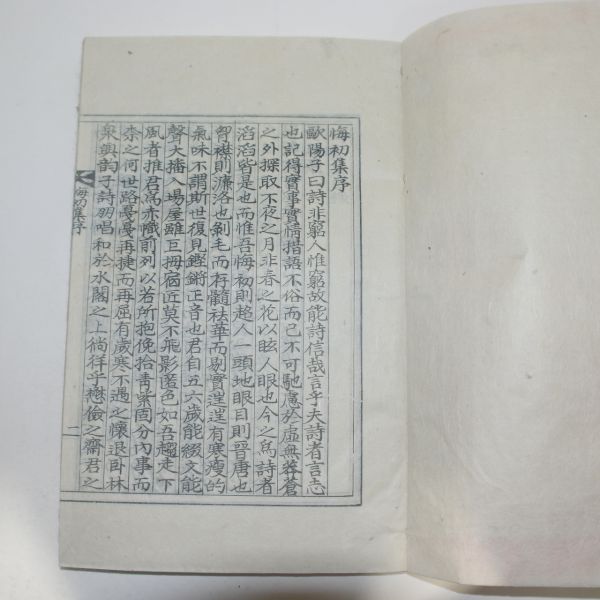 悔初集序
歐陽子曰詩非窮人惟窮故能詩信哉言乎夫詩者言志
也記得實事實情措語不俗而已不可馳慮於虛無莽蒼
之外探取不夜之月非春之花以眩人眼也今之爲詩者
滔滔皆是也而惟吾悔初則超人一頭地眼目則晉唐也
胷襟則濂洛也剝毛而存髓祛華而剔實浧浧有寒瘦的
氣味不謂斯世復見鏗鏘正音也君自五六歲能綴文能
聲大播入場屋雖巨擘宿匠莫不飛影匿色如吾趨走下
風者推君爲赤幟前列以若所抱俛拾靑紫固分內事而
柰之何世路戞戞再捷而再屈有歲寒不遇之懷退卧林
泉與韵子詩朋唱和於水閣之上徜徉乎懋儉之齋君之
悔初集序
一